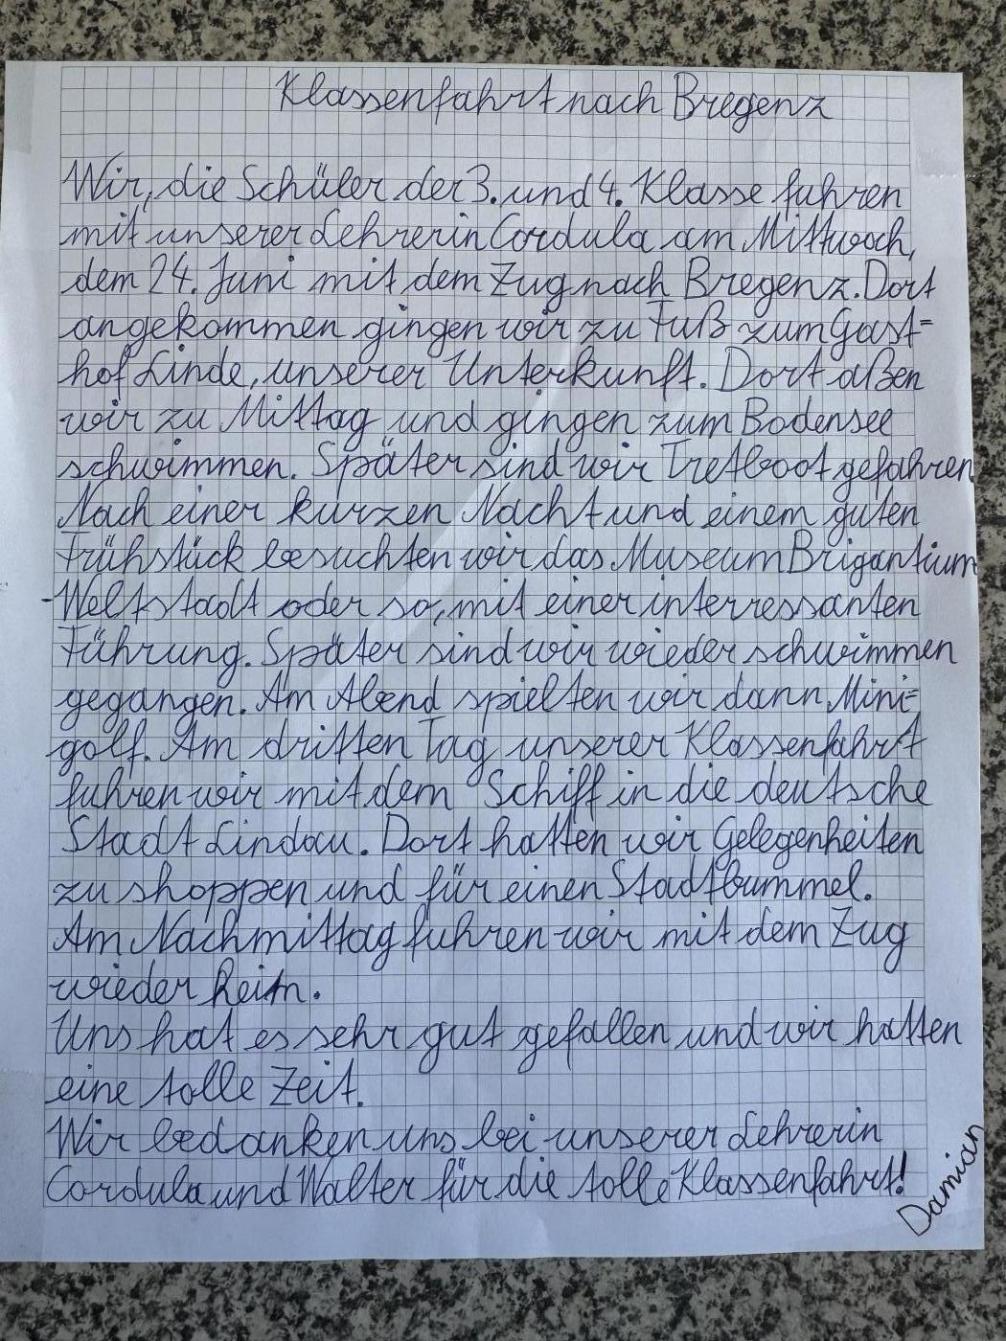 Klassenfahrt nach Bregenz
Wir, die Schüler der 3. und 4. Klasse fuhren
mit unserer Lehrerin Cordula am Mittwoch,
dem 24. Juni mit dem Zug nach Bregenz. Dort
angekommen gingen wir zu Fuß zum Gast=
hof Linde, unserer Unterkunft. Dort aßen
wir zu Mittag und gingen zum Bodensee
schwimmen. Später sind wir Tretboot gefahren
Nach einer kurzen Nacht und einem guten
Frühstück besuchten wir das Museum Brigantium
-Weltstadt oder so, mit einer interressanten
Führung. Später sind wir wieder schwimmen
gegangen. Am Abend spielten wir dann Mini=
golf. Am dritten Tag unserer Klassenfahrt
fuhren wir mit dem Schiff in die deutsche
Stadt Lindau. Dort hatten wir Gelegenheiten
zu shoppen und für einen Stadtbummel.
Am Nachmittag fuhren wir mit dem Zug
wieder heim.
Uns hat es sehr gut gefallen und wir hatten
eine tolle Zeit.
Wir bedanken uns bei unserer Lehrerin
Cordula und Walter für die tolle Klassenfahrt!
Damian